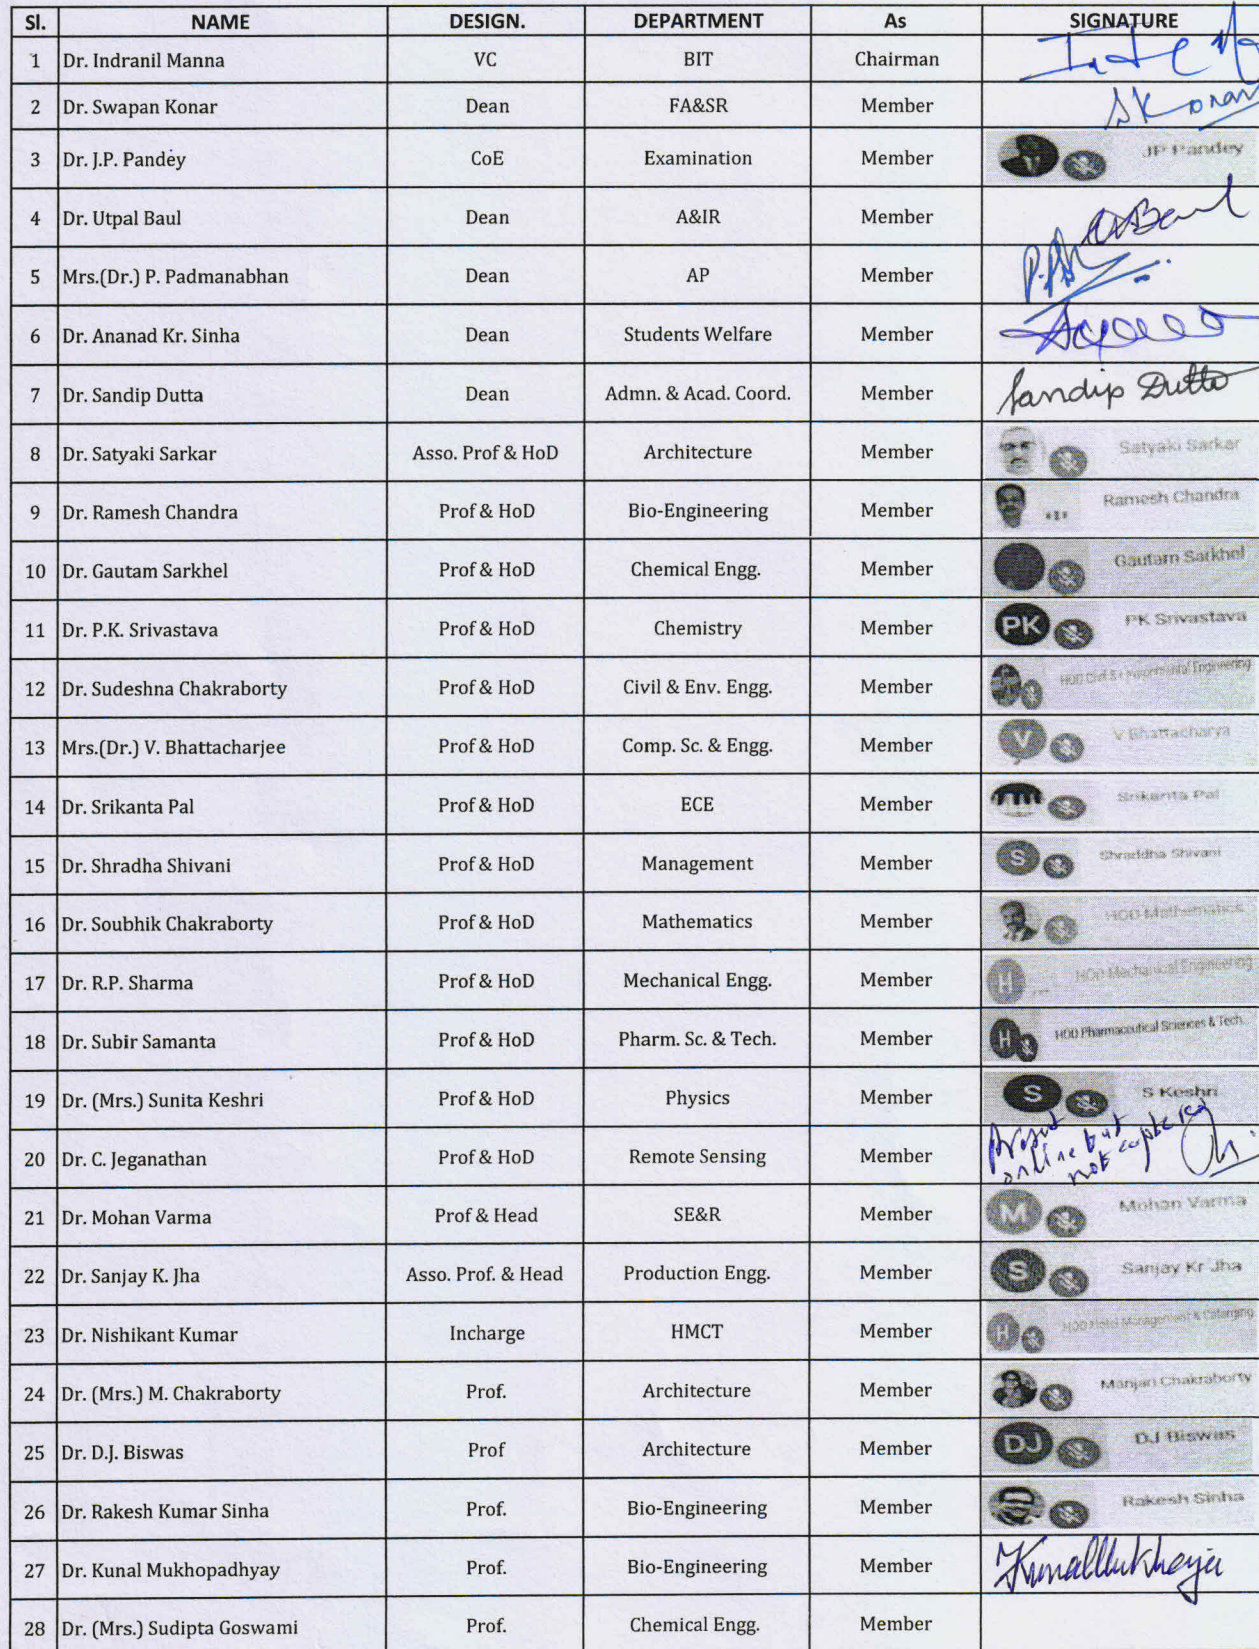 Sl. NAME DESIGN. DEPARTMENT As SIGNATURE
1 Dr. Indranil Manna VC BIT Chairman
2 Dr. Swapan Konar Dean FA&SR Member SKonar
3 Dr. J.P. Pandey CoE Examination Member JP Pandey
4 Dr. Utpal Baul Dean A&IR Member UBaul
5 Mrs.(Dr.) P. Padmanabhan Dean AP Member
6 Dr. Ananad Kr. Sinha Dean Students Welfare Member
7 Dr. Sandip Dutta Dean Admn. & Acad. Coord. Member Sandip Dutta
8 Dr. Satyaki Sarkar Asso. Prof & HoD Architecture Member Satyaki Sarkar
9 Dr. Ramesh Chandra Prof & HoD Bio-Engineering Member Ramesh Chandra
10 Dr. Gautam Sarkhel Prof & HoD Chemical Engg. Member Gautam Sarkhel
11 Dr. P.K. Srivastava Prof & HoD Chemistry Member PK PK Srivastava
12 Dr. Sudeshna Chakraborty Prof & HoD Civil & Env. Engg. Member HOD Civil & Environmental Engineering
13 Mrs.(Dr.) V. Bhattacharjee Prof & HoD Comp. Sc. & Engg. Member V V Bhattacharya
14 Dr. Srikanta Pal Prof & HoD ECE Member Srikanta Pal
15 Dr. Shradha Shivani Prof & HoD Management Member S Shraddha Shivani
16 Dr. Soubhik Chakraborty Prof & HoD Mathematics Member HOD Mathematics
17 Dr. R.P. Sharma Prof & HoD Mechanical Engg. Member H HOD Mechanical Engineering
18 Dr. Subir Samanta Prof & HoD Pharm. Sc. & Tech. Member H HOD Pharmaceutical Sciences & Tech.
19 Dr. (Mrs.) Sunita Keshri Prof & HoD Physics Member S S Keshri
20 Dr. C. Jeganathan Prof & HoD Remote Sensing Member Present online but not captured
21 Dr. Mohan Varma Prof & Head SE&R Member M Mohan Varma
22 Dr. Sanjay K. Jha Asso. Prof. & Head Production Engg. Member S Sanjay Kr Jha
23 Dr. Nishikant Kumar Incharge HMCT Member H HOD Hotel Management & Caterging
24 Dr. (Mrs.) M. Chakraborty Prof. Architecture Member Manjari Chakraborty
25 Dr. D.J. Biswas Prof Architecture Member DJ DJ Biswas
26 Dr. Rakesh Kumar Sinha Prof. Bio-Engineering Member Rakesh Sinha
27 Dr. Kunal Mukhopadhyay Prof. Bio-Engineering Member
28 Dr. (Mrs.) Sudipta Goswami Prof. Chemical Engg. Member